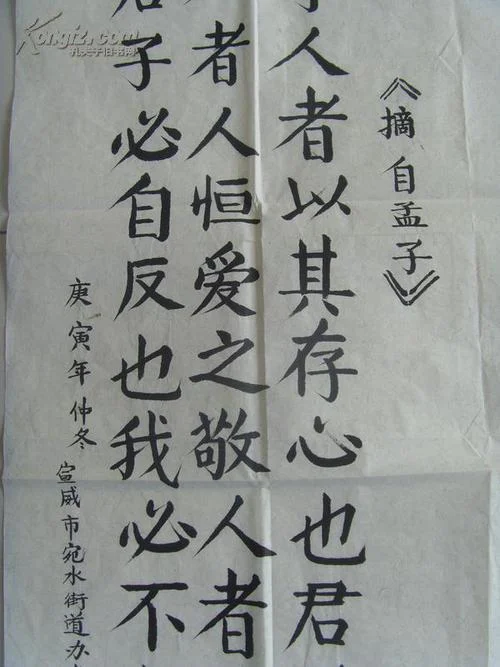 《摘自孟子》
人者以其存心也君
者人恒爱之敬人者
子必自反也我必不
庚寅年仲冬 宣威市宛水街道办
Kongfz.com
孔夫子旧书网